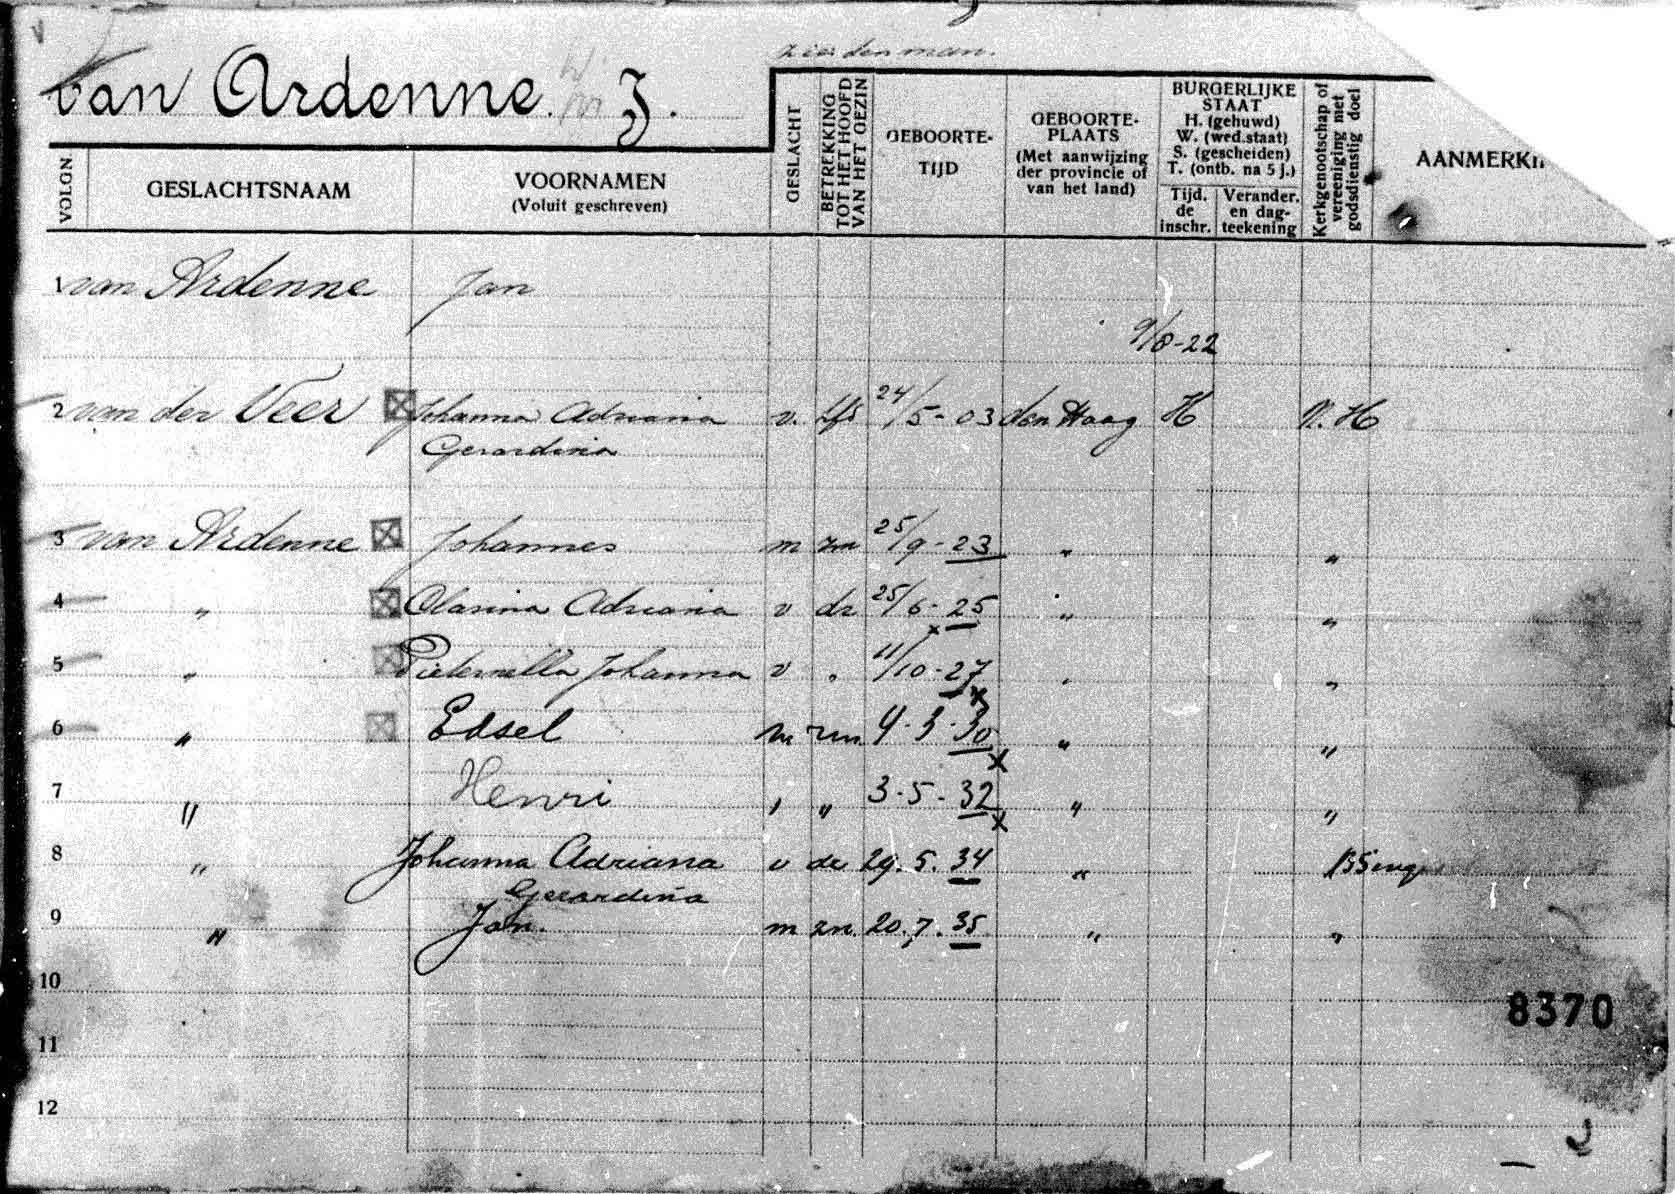 zie den man.
van Ardenne. J.
VOLGN.
GESLACHTSNAAM
VOORNAMEN
(Voluit geschreven)
GESLACHT
BETREKKING
TOT HET HOOFD
VAN HET GEZIN
GEBOORTE-
TIJD
GEBOORTE-
PLAATS
(Met aanwijzing
der provincie of
van het land)
BURGERLIJKE
STAAT
H. (gehuwd)
W. (wed.staat)
S. (gescheiden)
T. (ontb. na 5 j.)
Tijd.
de
inschr.
Verander.
en dag-
teekening
Kerkgenootschap of
vereeniging met
godsdienstig doel
AANMERKIN
1 van Ardenne Jan
9/8-22
2 van der Veer Johanna Adriana v. 24/5-03 den Haag H N.H
Gerardina
3 van Ardenne Johannes m zn 25/9-23 " "
4 " Clasina Adriana v dr 25/6-25 " "
5 " Pieternella Johanna v " 11/10-27 " "
6 " Edsel m zn. 4.3.30 " "
7 " Henri " " 3.5.32 " "
8 " Johanna Adriana v dr 29.5.34 "
Gerardina
9 " Jan. m zn. 20.7.35 " "
10
11
12
8370